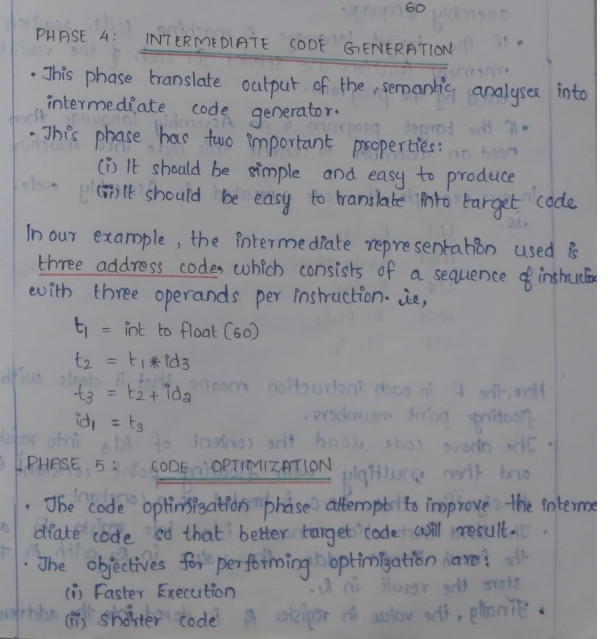 60
PHASE 4: INTERMEDIATE CODE GENERATION
• This phase translate output of the semantic analyses into
intermediate code generator.
• This phase has two important properties:
(i) It should be simple and easy to produce
(ii) It should be easy to translate into target code
In our example, the intermediate representation used is
three address code, which consists of a sequence of instruction
with three operands per instruction. i.e,
t1 = int to float (60)
t2 = t1 * id3
t3 = t2 + id2
id1 = t3
PHASE 5: CODE OPTIMIZATION
• The code optimization phase attempt to improve the interme
diate code so that better target code will result.
• The objectives for performing optimization are:
(i) Faster Execution
(ii) Shorter code